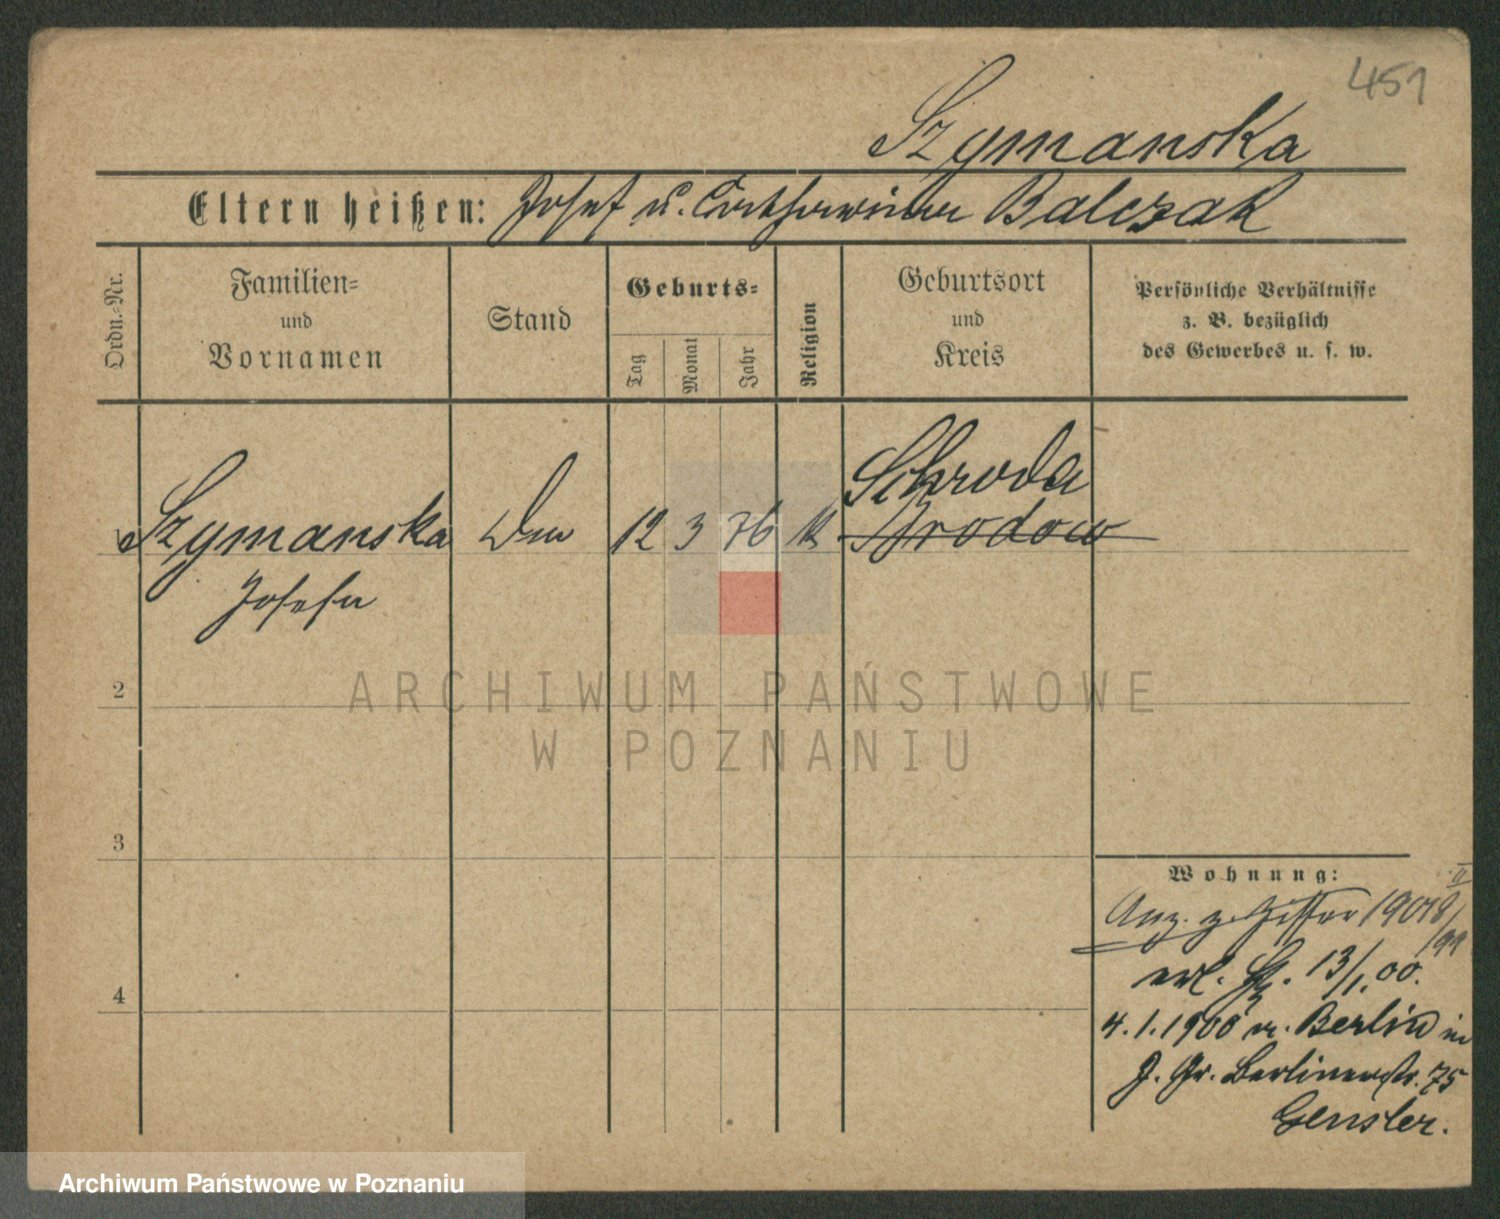 451
Szymanska
Eltern heißen: Josef u. Catharina Balczak
Ordn.-Nr.
Familien-
und
Vornamen
Stand
Geburts-
Tag
Monat
Jahr
Religion
Geburtsort
und
Kreis
Persönliche Verhältnisse
z. B. bezüglich
des Gewerbes u. s. w.
Schroda
Szymanska 12 3 76 k Brodowo
Josefa
2
ARCHIWUM PAŃSTWOWE
W POZNANIU
3
Wohnung:
II
Anz. z. Ziffer 19018/99
erl. 13/1.00.
4.1.1900 v. Berlin in
J. Gr. Berlinerstr. 75
Gensler.
4
Archiwum Państwowe w Poznaniu